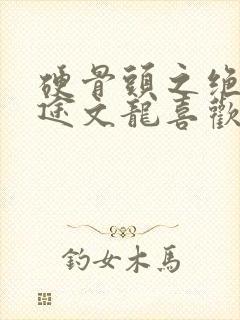 硬骨頭之绝
途文龍喜歡
釣女木馬